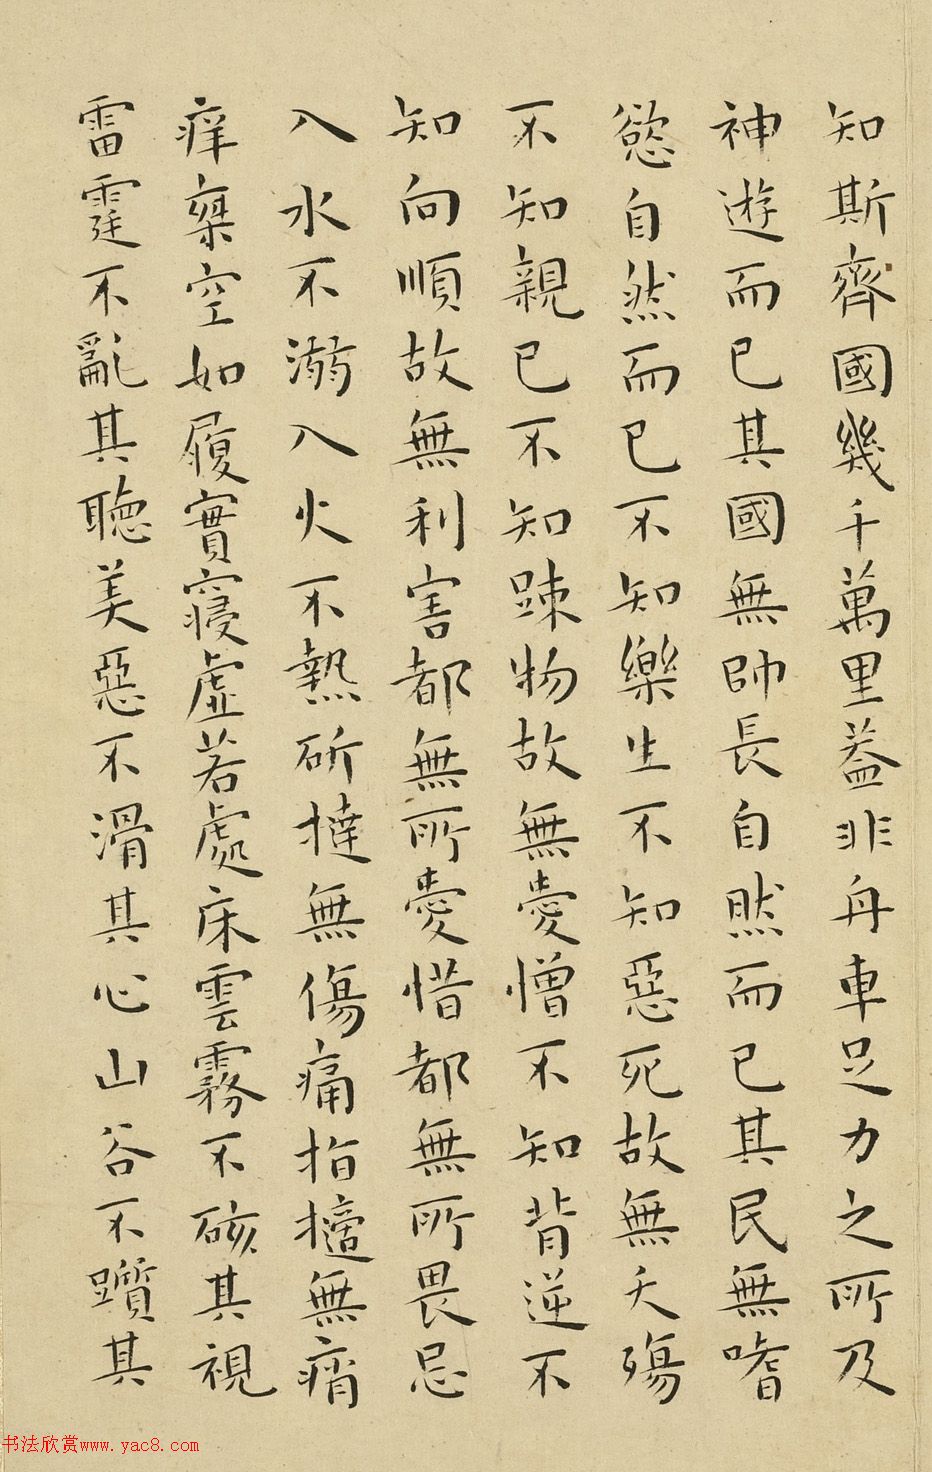 知斯齊國幾千萬里蓋非舟車足力之所及
神遊而已其國無帥長自然而已其民無嗜
慾自然而已不知樂生不知惡死故無夭殤
不知親已不知踈物故無愛憎不知背逆不
知向順故無利害都無所愛惜都無所畏忌
入水不溺入火不熱斫撻無傷痛指擿無痟
痒椉空如履實寢虛若處床雲霧不硋其視
雷霆不亂其聽美惡不滑其心山谷不躓其
书法欣赏www.yac8.com